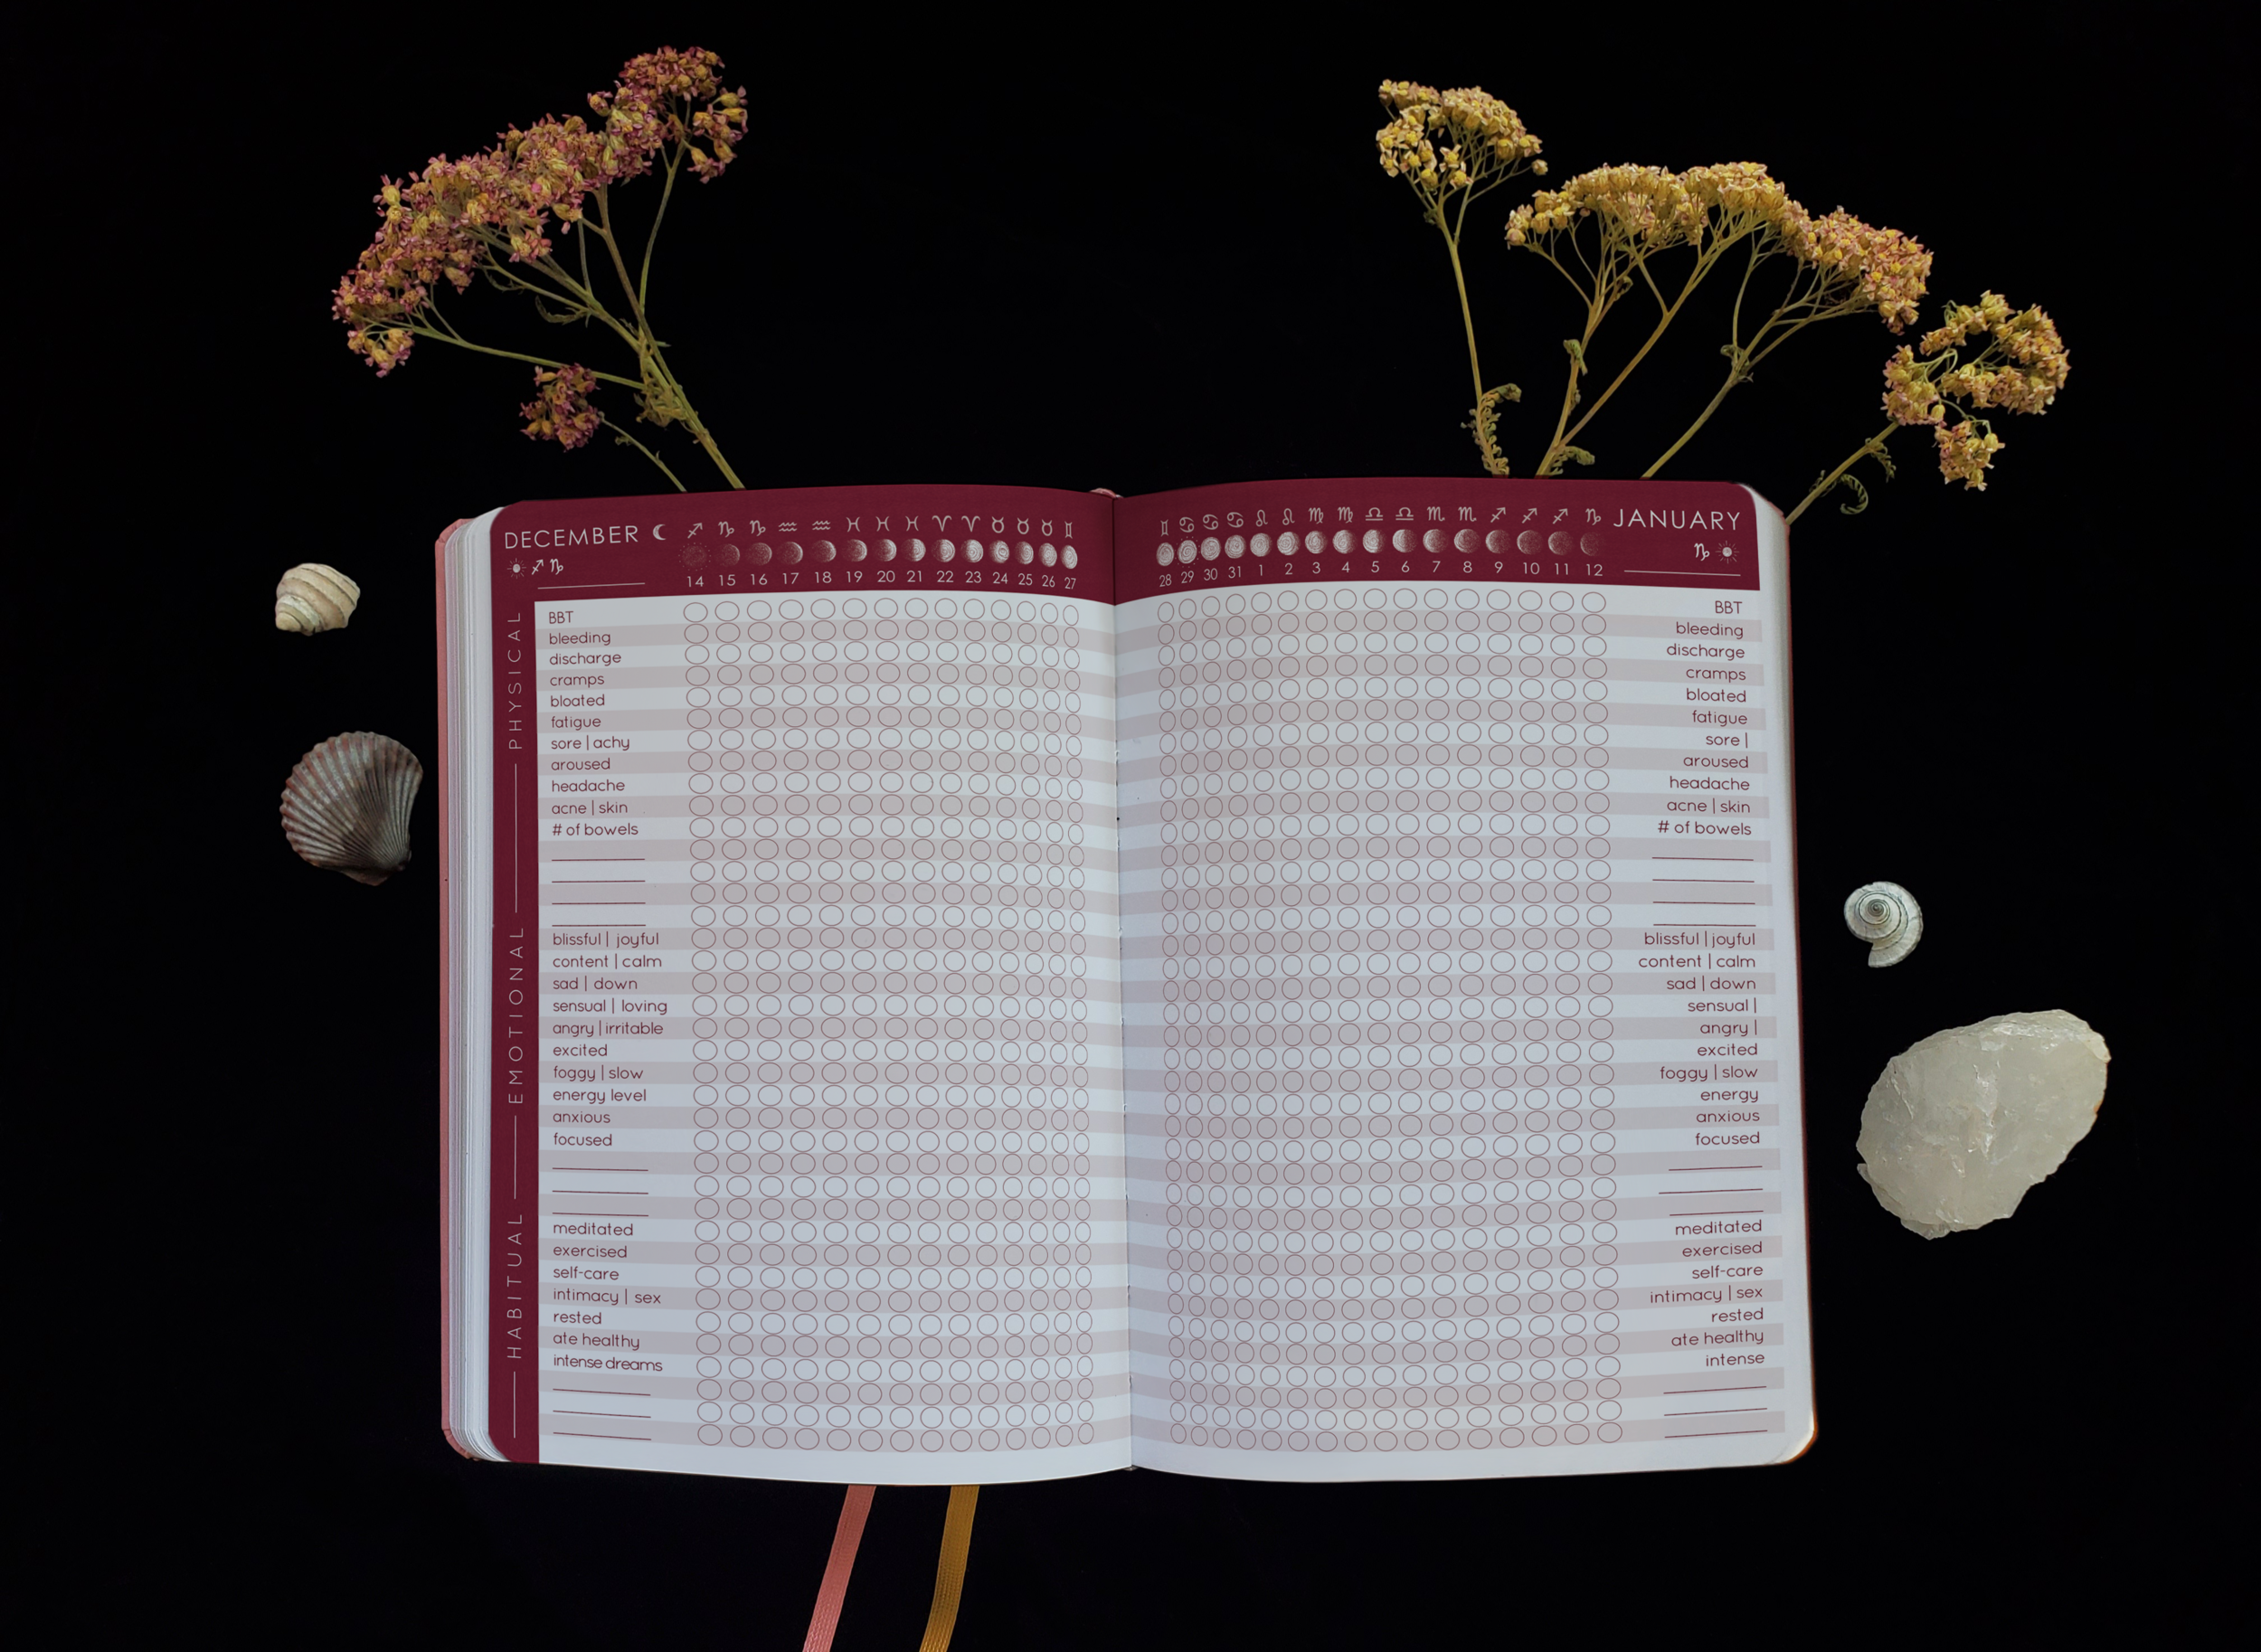 DECEMBER ☾ ♐ ♑ ♑ ♒ ♒ ♓ ♓ ♓ ♈ ♈ ♉ ♉ ♉ ♊
☀ ♐ ♑
14 15 16 17 18 19 20 21 22 23 24 25 26 27
PHYSICAL
BBT
bleeding
discharge
cramps
bloated
fatigue
sore | achy
aroused
headache
acne | skin
# of bowels
EMOTIONAL
blissful | joyful
content | calm
sad | down
sensual | loving
angry | irritable
excited
foggy | slow
energy level
anxious
focused
HABITUAL
meditated
exercised
self-care
intimacy | sex
rested
ate healthy
intense dreams
♊ ♋ ♋ ♋ ♌ ♌ ♍ ♍ ♎ ♎ ♏ ♏ ♐ ♐ ♐ ♑ JANUARY
♑ ☀
28 29 30 31 1 2 3 4 5 6 7 8 9 10 11 12
BBT
bleeding
discharge
cramps
bloated
fatigue
sore |
aroused
headache
acne | skin
# of bowels
blissful | joyful
content | calm
sad | down
sensual |
angry |
excited
foggy | slow
energy
anxious
focused
meditated
exercised
self-care
intimacy | sex
rested
ate healthy
intense